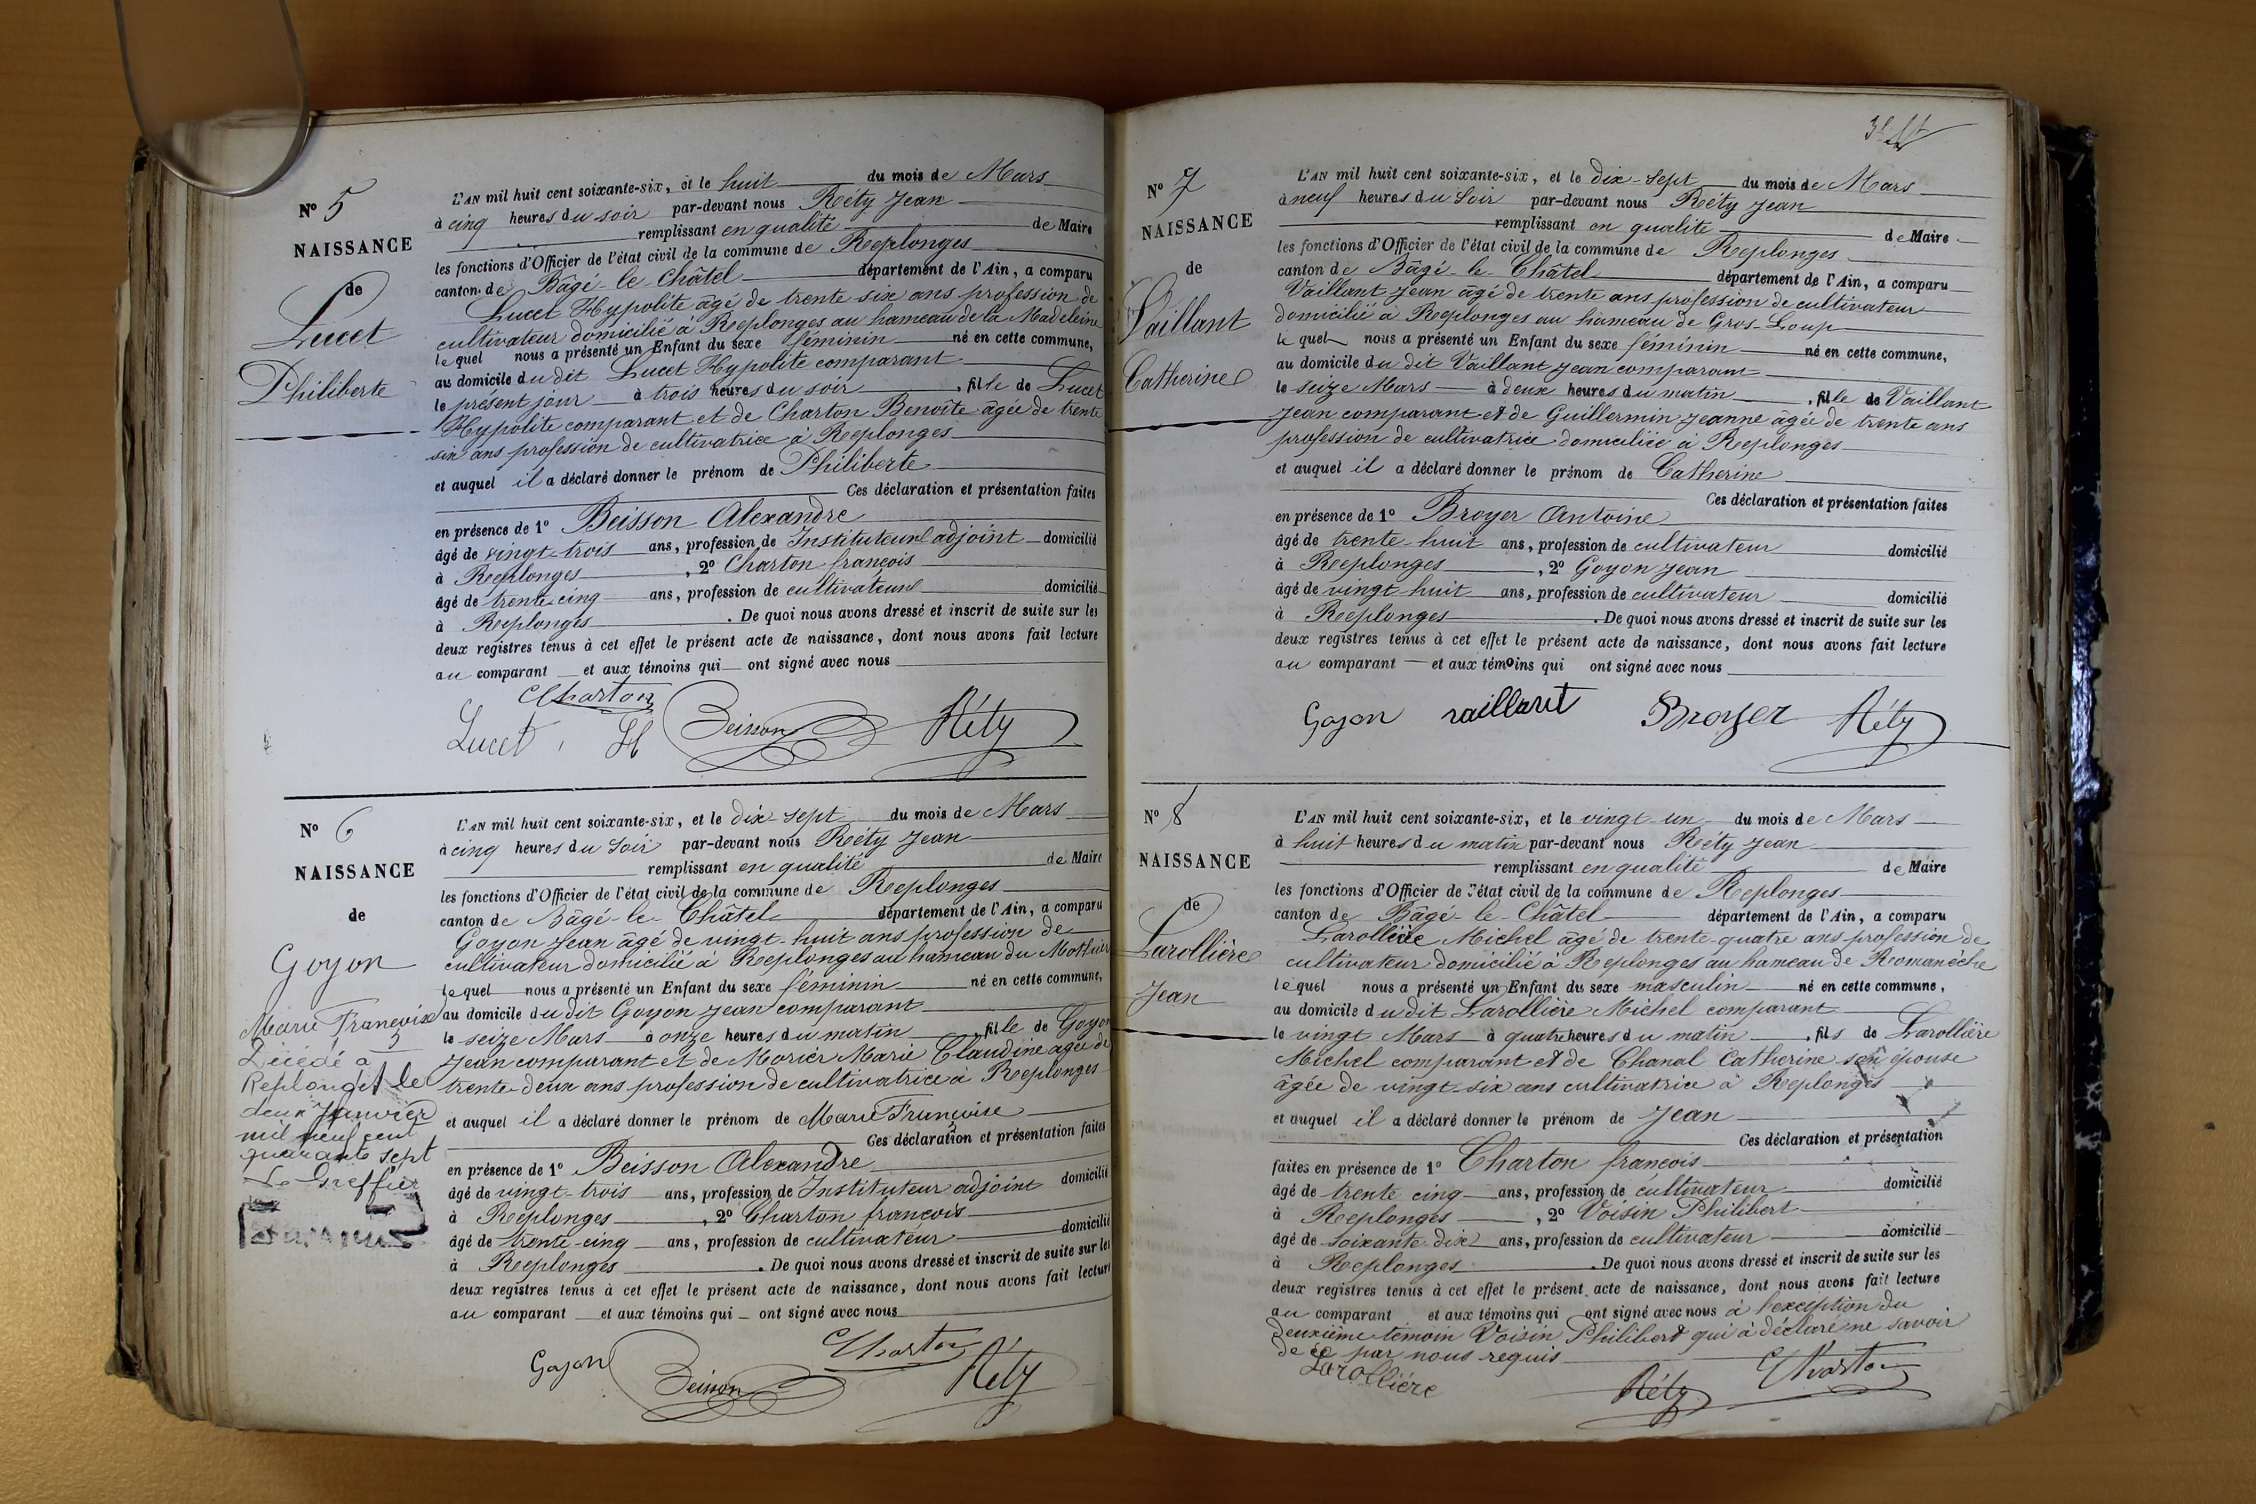 N° 5
NAISSANCE
de
Lucet
Philiberte
L'AN mil huit cent soixante-six, et le huit du mois de Mars
à cinq heures du soir par-devant nous Réty Jean
remplissant en qualité de Maire
les fonctions d'Officier de l'état civil de la commune de Replonges
canton de Bâgé-le-Châtel département de l'Ain, a comparu
Lucet Hypolite âgé de trente six ans profession de
cultivateur domicilié à Replonges au hameau de la Madeleine
lequel nous a présenté un Enfant du sexe féminin né en cette commune,
au domicile du dit Lucet Hypolite comparant
le présent jour à trois heures du soir, fille de Lucet
Hypolite comparant et de Charton Benoîte âgée de trente
six ans profession de cultivatrice à Replonges
et auquel il a déclaré donner le prénom de Philiberte
Ces déclaration et présentation faites
en présence de 1° Beisson Alexandre
âgé de vingt-trois ans, profession de Instituteur adjoint domicilié
à Replonges, 2° Charton françois
âgé de trente-cinq ans, profession de cultivateur domicilié
à Replonges. De quoi nous avons dressé et inscrit de suite sur les
deux registres tenus à cet effet le présent acte de naissance, dont nous avons fait lecture
au comparant et aux témoins qui ont signé avec nous
Charton
Lucet H Beisson Réty
N° 6
NAISSANCE
de
Goyon
Marie Françoise
Décédé à
Replonges le
deux Janvier
mil neuf cent
quarante sept
Le Greffier
L'AN mil huit cent soixante-six, et le dix sept du mois de Mars
à cinq heures du soir par-devant nous Réty Jean
remplissant en qualité de Maire
les fonctions d'Officier de l'état civil de la commune de Replonges
canton de Bâgé-le-Châtel département de l'Ain, a comparu
Goyon Jean âgé de vingt-huit ans profession de
cultivateur domicilié à Replonges au hameau du
lequel nous a présenté un Enfant du sexe féminin né en cette commune,
au domicile du dit Goyon Jean comparant
le seize Mars à onze heures du matin, fille de Goyon
Jean comparant et de Morier Marie Claudine âgée de
trente-deux ans profession de cultivatrice à Replonges
et auquel il a déclaré donner le prénom de Marie Françoise
Ces déclaration et présentation faites
en présence de 1° Beisson Alexandre
âgé de vingt-trois ans, profession de Instituteur adjoint domicilié
à Replonges, 2° Charton françois
âgé de trente-cinq ans, profession de cultivateur domicilié
à Replonges. De quoi nous avons dressé et inscrit de suite sur les
deux registres tenus à cet effet le présent acte de naissance, dont nous avons fait lecture
au comparant et aux témoins qui ont signé avec nous
Goyon Beisson Charton Réty
N° 7
NAISSANCE
de
Vaillant
Catherine
L'AN mil huit cent soixante-six, et le dix-sept du mois de Mars
à neuf heures du soir par-devant nous Réty Jean
remplissant en qualité de Maire
les fonctions d'Officier de l'état civil de la commune de Replonges
canton de Bâgé-le-Châtel département de l'Ain, a comparu
Vaillant Jean âgé de trente ans profession de cultivateur
domicilié à Replonges au hameau de Gros-Loup
lequel nous a présenté un Enfant du sexe féminin né en cette commune,
au domicile du dit Vaillant Jean comparant
le seize Mars à deux heures du matin, fille de Vaillant
Jean comparant et de Guillermin Jeanne âgée de trente ans
profession de cultivatrice domiciliée à Replonges
et auquel il a déclaré donner le prénom de Catherine
Ces déclaration et présentation faites
en présence de 1° Broyer Antoine
âgé de trente-huit ans, profession de cultivateur domicilié
à Replonges, 2° Goyon Jean
âgé de vingt huit ans, profession de cultivateur domicilié
à Replonges. De quoi nous avons dressé et inscrit de suite sur les
deux registres tenus à cet effet le présent acte de naissance, dont nous avons fait lecture
au comparant et aux témoins qui ont signé avec nous
Goyon vaillant Broyer Réty
N° 8
NAISSANCE
de
Larollière
Jean
L'AN mil huit cent soixante-six, et le vingt-un du mois de Mars
à huit heures du matin par-devant nous Réty Jean
remplissant en qualité de Maire
les fonctions d'Officier de l'état civil de la commune de Replonges
canton de Bâgé-le-Châtel département de l'Ain, a comparu
Larollière Michel âgé de trente-quatre ans profession de
cultivateur domicilié à Replonges au hameau de Romanèche
lequel nous a présenté un Enfant du sexe masculin né en cette commune,
au domicile du dit Larollière Michel comparant
le vingt Mars à quatre heures du matin, fils de Larollière
Michel comparant et de Chanal Catherine son épouse
âgée de vingt-six ans cultivatrice à Replonges
et auquel il a déclaré donner le prénom de Jean
Ces déclaration et présentation
faites en présence de 1° Charton françois
âgé de trente cinq ans, profession de cultivateur domicilié
à Replonges, 2° Voisin Philibert
âgé de soixante-dix ans, profession de cultivateur domicilié
à Replonges. De quoi nous avons dressé et inscrit de suite sur les
deux registres tenus à cet effet le présent acte de naissance, dont nous avons fait lecture
au comparant et aux témoins qui ont signé avec nous à l'exception du
deuxième témoin Voisin Philibert qui à déclaré ne savoir
de ce par nous requis
Larollière Réty Charton